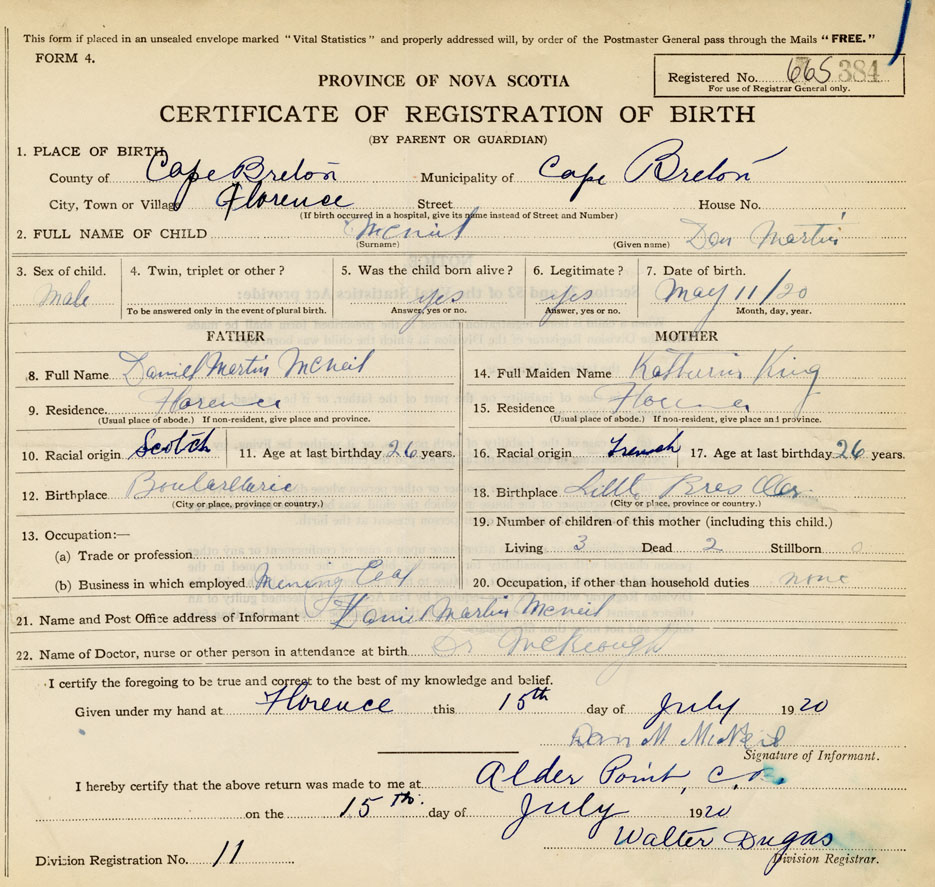 This form if placed in an unsealed envelope marked "Vital Statistics" and properly addressed will, by order of the Postmaster General pass through the Mails "FREE."
FORM 4.
PROVINCE OF NOVA SCOTIA
Registered No. 665 384
For use of Registrar General only.
CERTIFICATE OF REGISTRATION OF BIRTH
(BY PARENT OR GUARDIAN)
1. PLACE OF BIRTH
County of Cape Breton Municipality of Cape Breton
City, Town or Village Florence Street House No.
(If birth occurred in a hospital, give its name instead of Street and Number)
2. FULL NAME OF CHILD McNeil Dan Martin
(Surname) (Given name)
3. Sex of child. 4. Twin, triplet or other? 5. Was the child born alive? 6. Legitimate? 7. Date of birth.
Male yes yes May 11/20
To be answered only in the event of plural birth. Answer, yes or no. Answer, yes or no. Month, day, year.
FATHER MOTHER
8. Full Name Daniel Martin McNeil 14. Full Maiden Name Katherine King
9. Residence. Florence 15. Residence Florence
(Usual place of abode.) If non-resident, give place and province. (Usual place of abode.) If non-resident, give place and province.
10. Racial origin Scotch 11. Age at last birthday 26 years. 16. Racial origin French 17. Age at last birthday 26 years.
12. Birthplace Boulardarie 18. Birthplace Little Bras
(City or place, province or country.) (City or place, province or country.)
19. Number of children of this mother (including this child.)
13. Occupation:—
(a) Trade or profession Living 3 Dead 2 Stillborn 0
(b) Business in which employed Mening Coal 20. Occupation, if other than household duties. none
21. Name and Post Office address of Informant Daniel Martin McNeil
22. Name of Doctor, nurse or other person in attendance at birth Dr McKeough
I certify the foregoing to be true and correct to the best of my knowledge and belief.
Given under my hand at Florence this 15th day of July 1920
Dan M McNeil
Signature of Informant.
I hereby certify that the above return was made to me at Alder Point, C.B.
on the 15th. day of July 1920
Walter Dugas
Division Registration No. 11 Division Registrar.